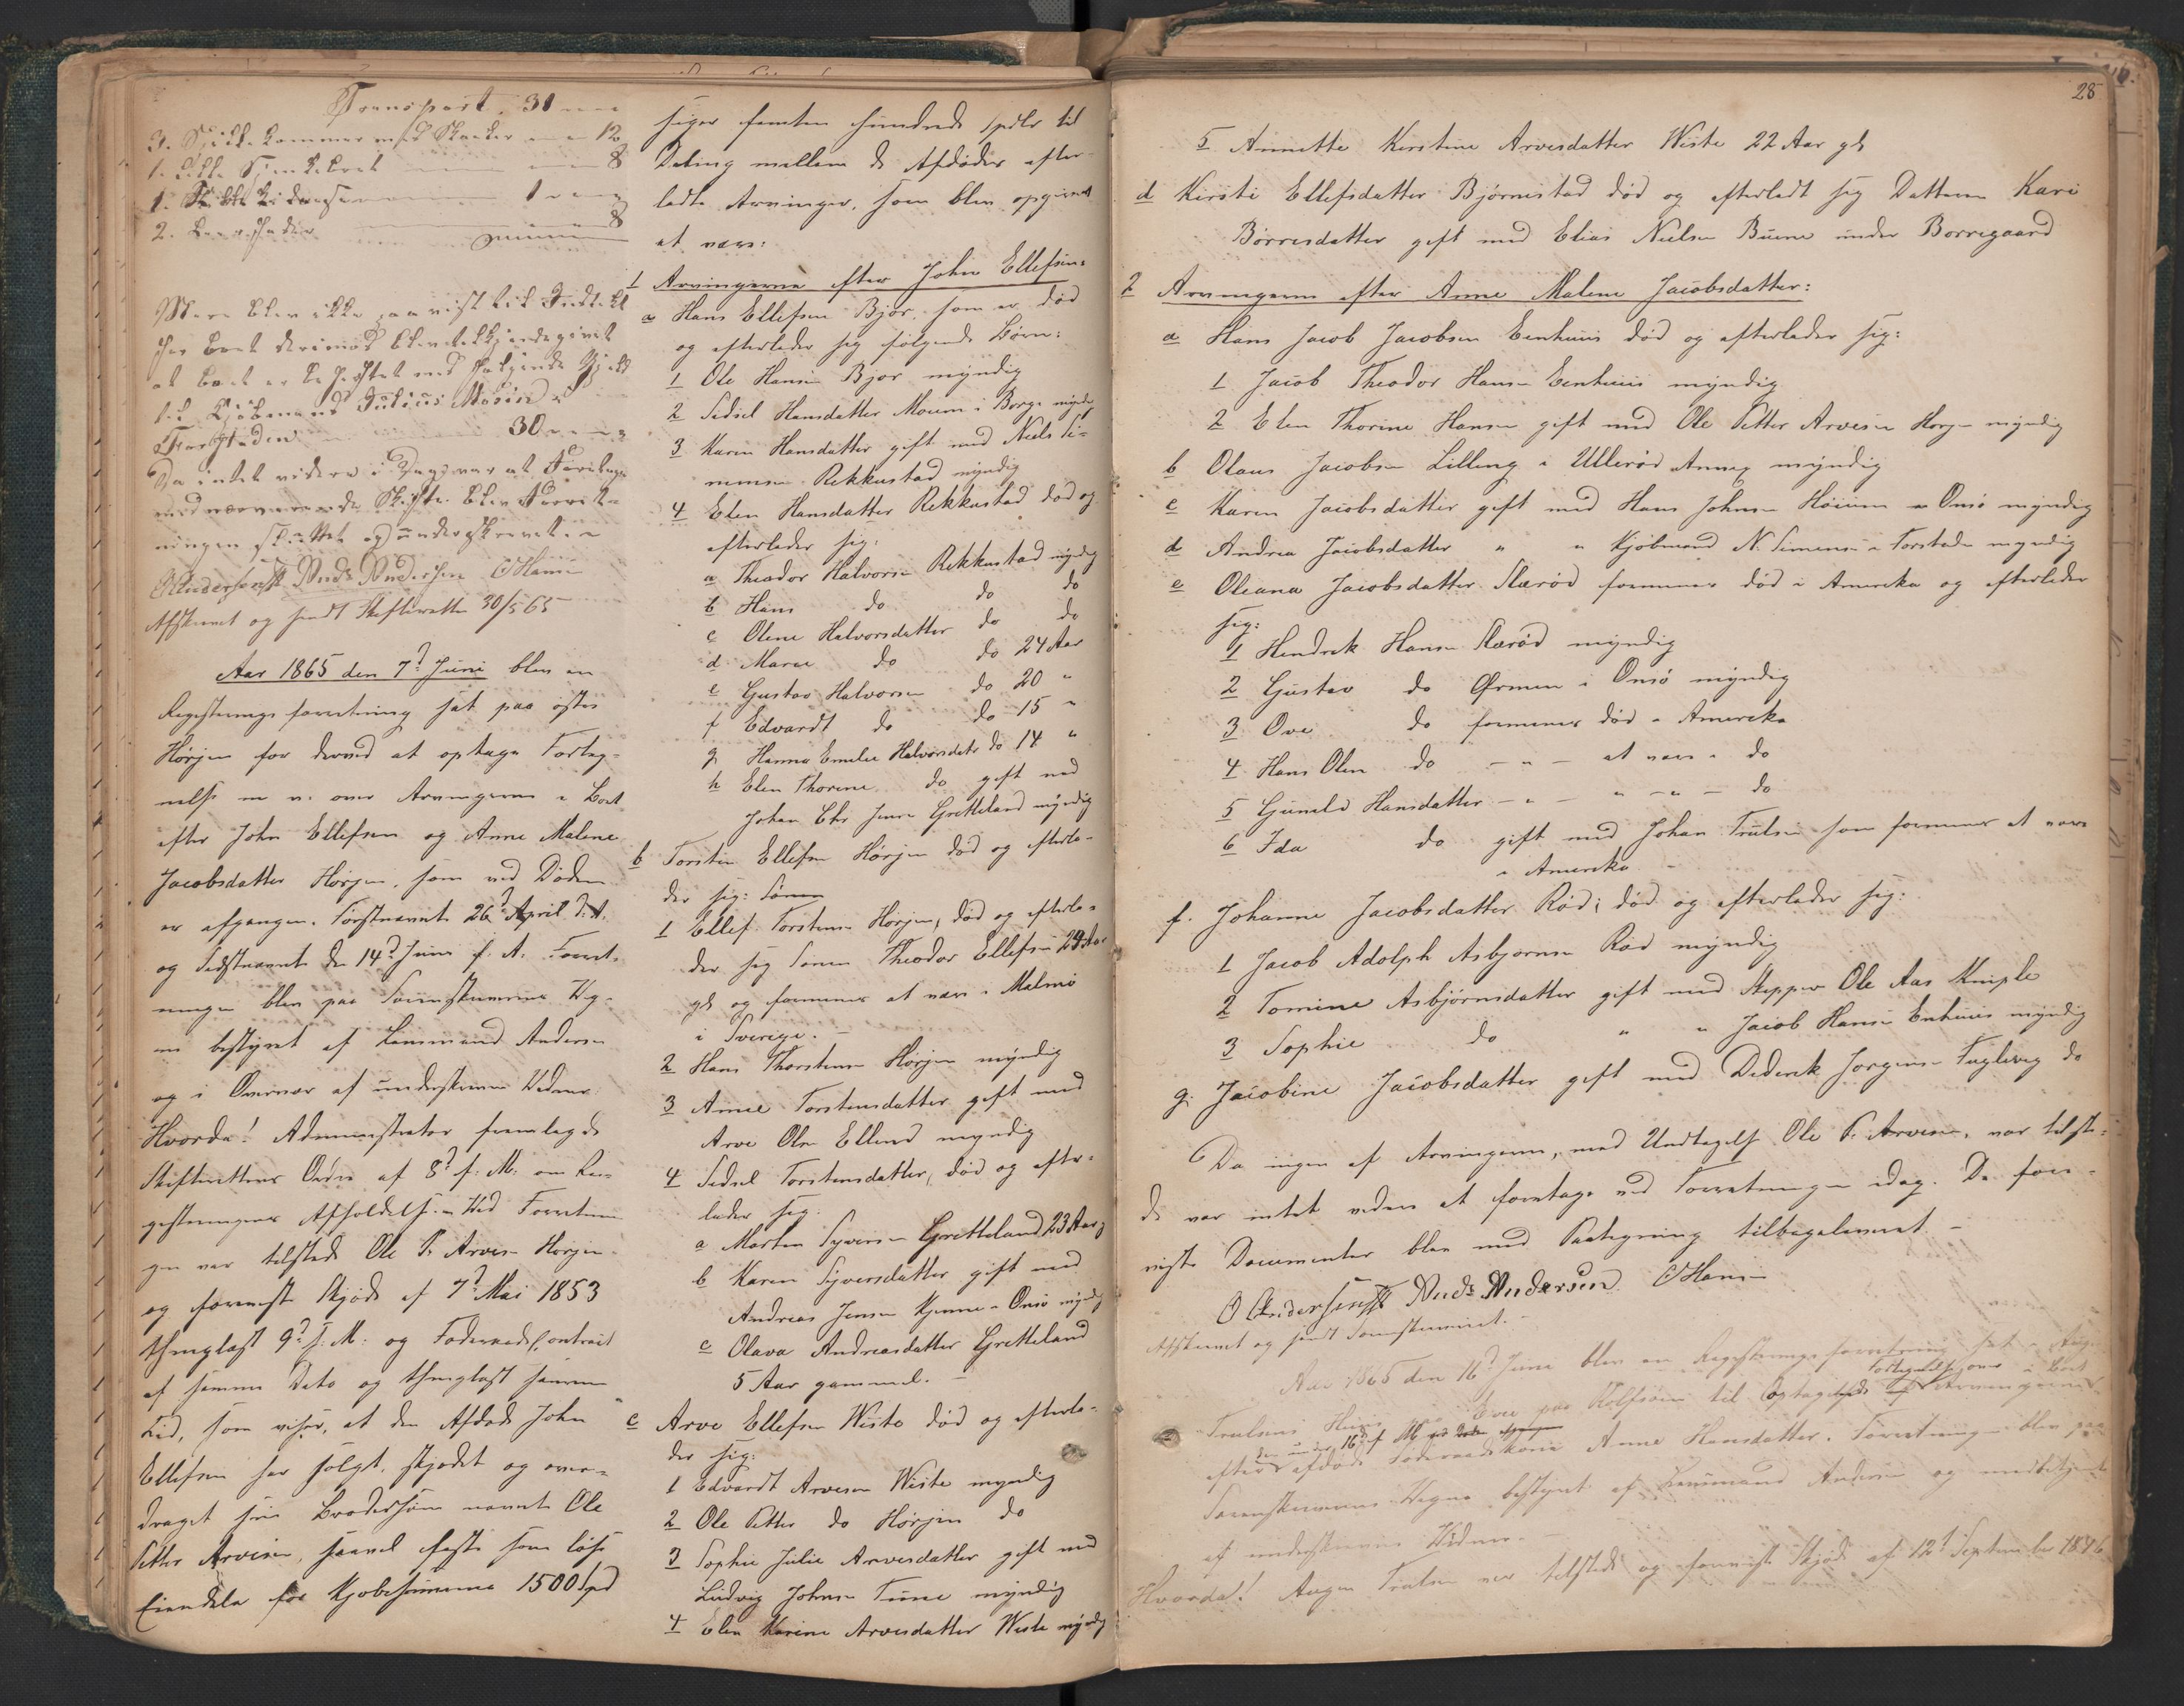 Transport 30
3. Spille Kommer med Skanker 12
1. Lidke 8
1.
2. 8
Mere blev ikke paavist til Indtekt
for Boet derimod blev tilkjendegivet
at Boet er beheftet med følgende Gjæld
til Kjøbmand Julius
Thorstaden 30
Da intet videre i Dag var at Foretage
ved nærværende Skifte blev Forret-
ningen sluttet og underskreven
OAndersen Ands Andersen O Hansen
Afskrevet og sendt Skifteretten 30/5 65
Aar 1865 den 7d Juni blev en
Registrerings forretning sat paa østre
Hørjen for derved at optage Forteg-
nelse m v. over Arvingerne i Boet
efter John Ellefsen og Anne Malene
Jacobsdatter Horjen, som ved Døden
er afgangen. Førstnævnte 26d April d. A.
og Sidstnævnte den 14d Juni f. A. Forret-
ningen blev paa Sorenskriverens Veg-
ne bestyret af Lensmand Andersen
og i Overvær af underskrevne Vidner
Hvorda! Administrator fremlagde
Skifterettens Ordre af 3d f. M. om Re-
gistreringens Afholdelse. - Ved Forretnin-
gen var tilstede Ole P. Arvesen Horjen
og foreviste Skjøde af 7d Mai 1853
thinglæst 9d s. M. og Føderaadscontract
af samme Dato og thinglæst samme
Tid, som viser, at den Afdøde John
Ellefsen har solgt, skjødet og over-
draget sin Brodersøn nævnte Ole
Petter Arvesen, saavel faste som løse
Eiendele for Kjøbesummen 1500 Spd
siger femten hundrede spdlr til
Deling mellem de Afdødes efter-
ladte Arvinger, som blev opgivet
at være:
1 Arvingerne efter John Ellefsen:
a Hans Ellefsen Bjør, som er død
og efterlader sig følgende Børn:
1 Ole Hansen Bjor myndig
2 Sidsel Hansdatter Moum i Borge myndig
3 Karen Hansdatter gift med Niels Si-
mensen Rekkustad myndig
4 Elen Hansdatter Rekkustad død og
efterlader sig:
a Theodor Halvorsen Rekkustad myndig
b Hans do do do
c Olene Halvorsdatter do do
d Maren do do 24 Aar
e Gustav Halvorsen do 20 "
f Edvardt do do 15 "
g Hanna Emelie Halvorsdatr do 14 "
h Elen Thorene do gift med
Johan Chr Jensen Gretteland myndig
b Torsten Ellefsen Hørjen død og efterla-
der sig: Sønen
1 Ellef Torstensen Horjen, død og efterla-
der sig Sønen Theodor Ellefsen 29 Aar
gl og formenes at være i Malmø
i Sverige. -
2 Hans Thorstensen Horjen myndig
3 Anne Torstensdatter gift med
Arve Olsen Ellend myndig
4 Sidsel Torstensdatter, død og efter-
lader sig.
a Martin Syversen Gretteland 23 Aar gl
b Karen Syversdatter gift med
Andreas Jensen Kjenne i Onsø myndig
c Olava Andreasdatter Gretteland
5 Aar gammel. -
c Arve Ellefsen Wiste død og efterla-
der sig:
1 Edvardt Arvesen Wiste myndig
2 Ole Petter do Hørjen do
3 Sophie Julie Arvesdatter gift med
Ludvig Johnsen Tune myndig
4 Elen Karine Arvesdatter Wiste myndig
28
5 Annette Kirstine Arvesdatter Wiste 22 Aar gl
d Kirsti Ellefsdatter Bjørnestad død og efterladt sig Datteren Kari
Børresdatter gift med Elias Nielsen Buene under Borregaard
2 Arvingerne efter Anne Malene Jacobsdatter:
a Hans Jacob Jacobsen Eenhuus død og efterlader sig:
1 Jacob Theodor Hansen Eenhuus myndig
2 Elen Thorine Hansen gift med Ole Petter Arvesen Horjen myndig
b Olaus Jacobsen Lilleng i Ullerøe Annex myndig
c Karen Jacobsdatter gift med Hans Johnsen Høium i Onsø myndig
d Andrea Jacobsdatter " " Kjøbmand N. Simensen i Forstaden myndig
e Oleana Jacobsdatter Skarød formenes død i Amerika og efterlader
sig:
1 Hendrik Hansen Skarød myndig
2 Gustav do Ørmen i Onsø myndig
3 Ove do formenes død i Amerika
4 Hans Olen do - " - at være i do
5 Gunild Hansdatter - " - " - " - do
6 Ida do gift med Johan Trulsen som formenes at være
i Amerika. -
f. Johanne Jacobsdatter Rød; død og efterlader sig:
1 Jacob Adolph Asbjørnsen Rød myndig
2 Tomine Asbjørnsdatter gift med Skipper Ole Aas Kniple
3 Sophie do " " Jacob Hansen Enhuus myndig
g. Jacobine Jacobsdatter gift med Dederik Jorgensen Fuglevig do
Da ingen af Arvingerne, med Undtagelse Ole P. Arvesen, var tilste-
de var intet videre at foretage ved Forretningen idag. De fore-
viste Documenter blev med Paategning tilbageleveret. -
O Andersen Ands Andersen O Hansen
Afskrevet og sendt Sorenskriveret. -
Aar 1865 den 16d Juni blev en Registrerings forretning sat i Aage
Trulsens Huus paa Rolfsøen til Optagelse af Fortegnelse over Arvingerne i Boet
efter den under 16d f M afdøde Føderaadskone Anne Hansdatter. Forretningen blev paa
Sorenskriverens Vegne bestyret af Lensmand Andersen og medbetjent
af underskrevne Vidner. -
Hvorda! Aagen Trulsen var tilstede og foreviste Skjøde af 12t September 1846